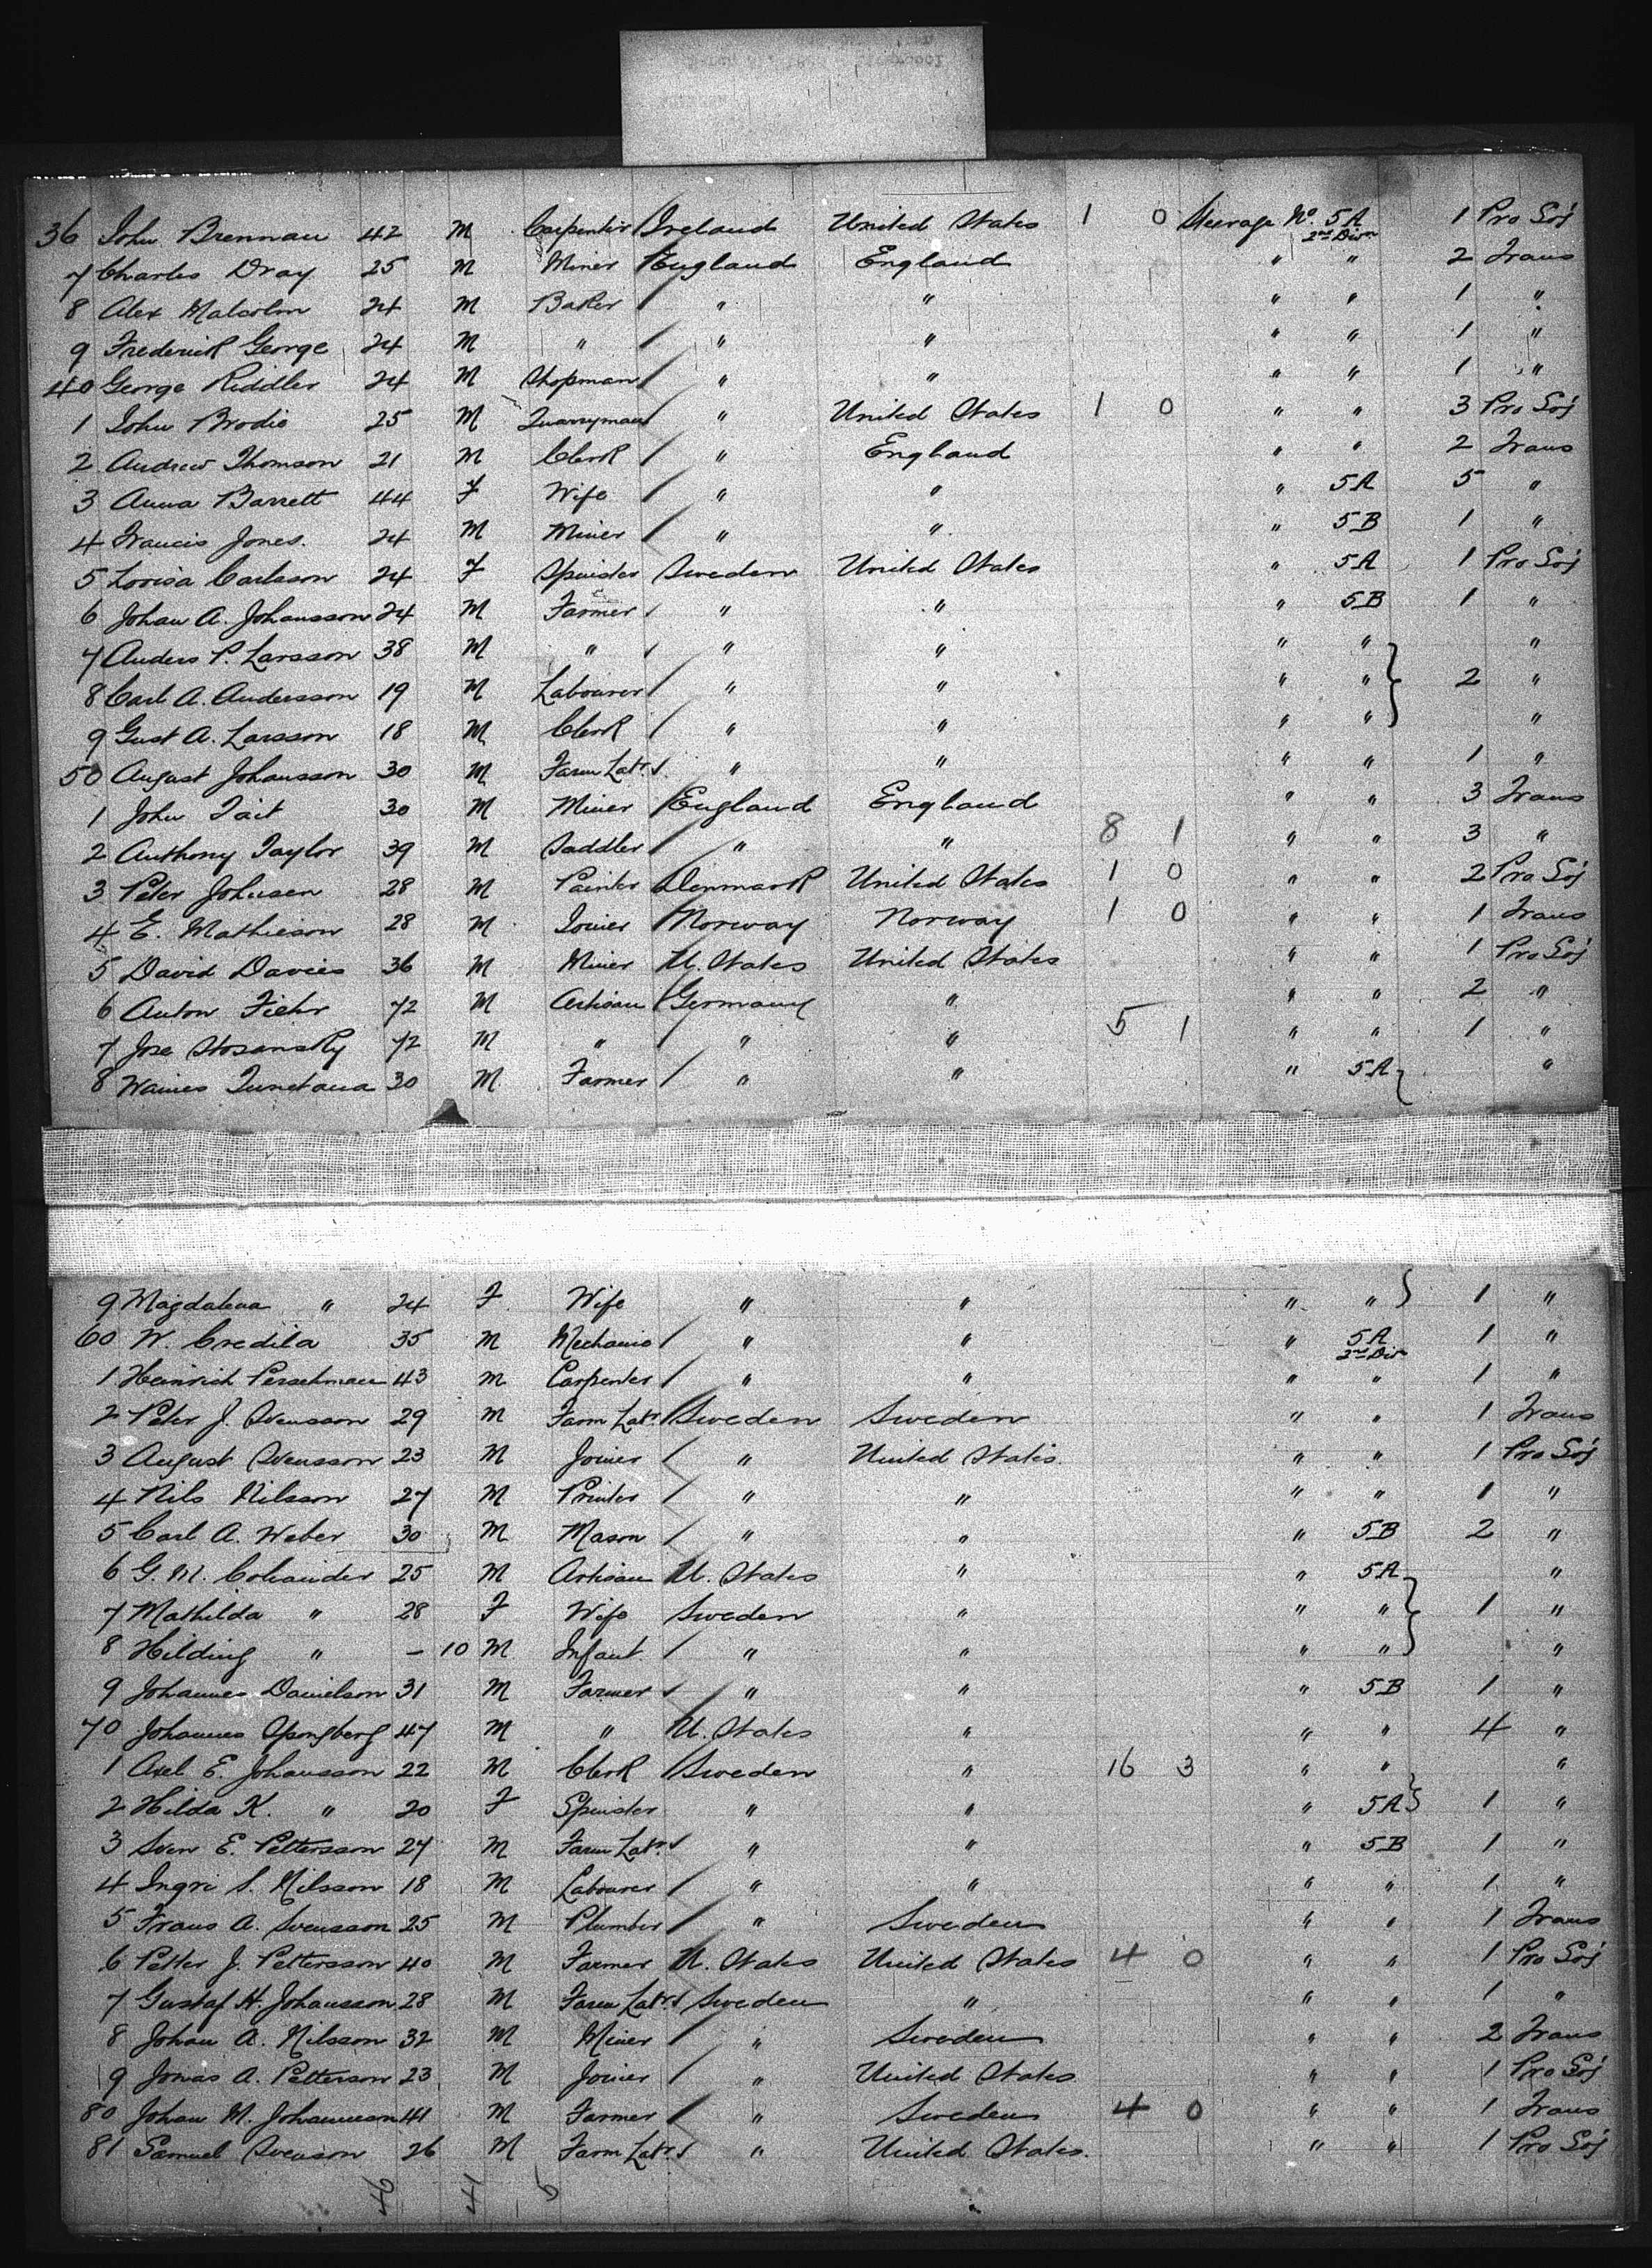 36 John Brennan 42 M Carpenter Ireland United States 1 0 Steerage No. 5A 2nd Divn 1 Pro Soj
7 Charles Dray 25 M Miner England England " " 2 Trans
8 Alex Malcolm 24 M Baker " " " " 1 "
9 Frederick George 24 M " " " " " 1 "
40 George Riddler 24 M Shopman " " " " 1 "
1 John Brodie 25 M Quarryman " United States 1 0 " " 3 Pro Soj
2 Andrew Thomson 21 M Clerk " England " " 2 Trans
3 Anna Barrett 44 F Wife " " " 5A 5 "
4 Francis Jones. 24 M Miner " " " 5B 1 "
5 Lovisa Carlsson 24 F Spinster Sweden United States " 5A 1 Pro Soj
6 Johan A. Johansson 24 M Farmer " " " 5B 1 "
7 Anders P. Larsson 38 M " " " " " "
8 Carl A. Andersson 19 M Labourer " " " " 2 "
9 Gust A. Larsson 18 M Clerk " " " " "
50 August Johansson 30 M Farm Labr. " " " " 1 "
1 John Tait 30 M Miner England England " " 3 Trans
2 Anthony Taylor 39 M Saddler " " 8 1 " " 3 "
3 Peter Johnsen 28 M Painter Denmark United States 1 0 " " 2 Pro Soj
4 E. Mathieson 28 M Joiner Norway Norway 1 0 " " 1 Trans
5 David Davies 36 M Miner U. States United States " " 1 Pro Soj
6 Anton Fiehr 72 M Artisan Germany " " " 2 "
7 Jose Stosansky 72 M " " " 5 1 " " 1 "
8 30 M Farmer " " " 5A "
9 Magdalena " 24 F Wife " " " " 1 "
60 W. Credila 35 M Mechanic " " " 5A 2nd Div 1 "
1 Heinrich 43 M Carpenter " " " " 1 "
2 Peter J. Svensson 29 M Farm Labr. Sweden Sweden " " 1 Trans
3 August Svensson 23 M Joiner " United States " " 1 Pro Soj
4 Nils Nilsson 27 M Printer " " " " 1 "
5 Carl A. Weber 30 M Mason " " " 5B 2 "
6 G. M. Coliander 25 M Artisan U. States " " 5A "
7 Mathilda " 28 F Wife Sweden " " " 1 "
8 Hilding " – 10 M Infant " " " " "
9 Johannes Danielson 31 M Farmer " " " 5B 1 "
70 Johannes Spongberg 47 M " U. States " " " 4 "
1 Axel E. Johansson 22 M Clerk Sweden " 16 3 " " "
2 Hilda K. " 20 F Spinster " " " 5A 1 "
3 Sven E. Pettersson 27 M Farm Labr. " " " 5B 1 "
4 Ingri S. Nilsson 18 M Labourer " " " " 1 "
5 Frans A. Svensson 25 M Plumber " Sweden " " 1 Trans
6 Petter J. Pettersson 40 M Farmer U. States United States 4 0 " " 1 Pro Soj
7 Gustaf H. Johansson 28 M Farm Labr. Sweden " " " 1 "
8 Johan A. Nilsson 32 M Miner " Sweden " " 2 Trans
9 Jonas A. Petterson 23 M Joiner " United States " " 1 Pro Soj
80 Johan M. Johannesson 41 M Farmer " Sweden 4 0 " " 1 Trans
81 Samuel Svenson 26 M Farm Labr. " United States. " " 1 Pro Soj
46 41 5